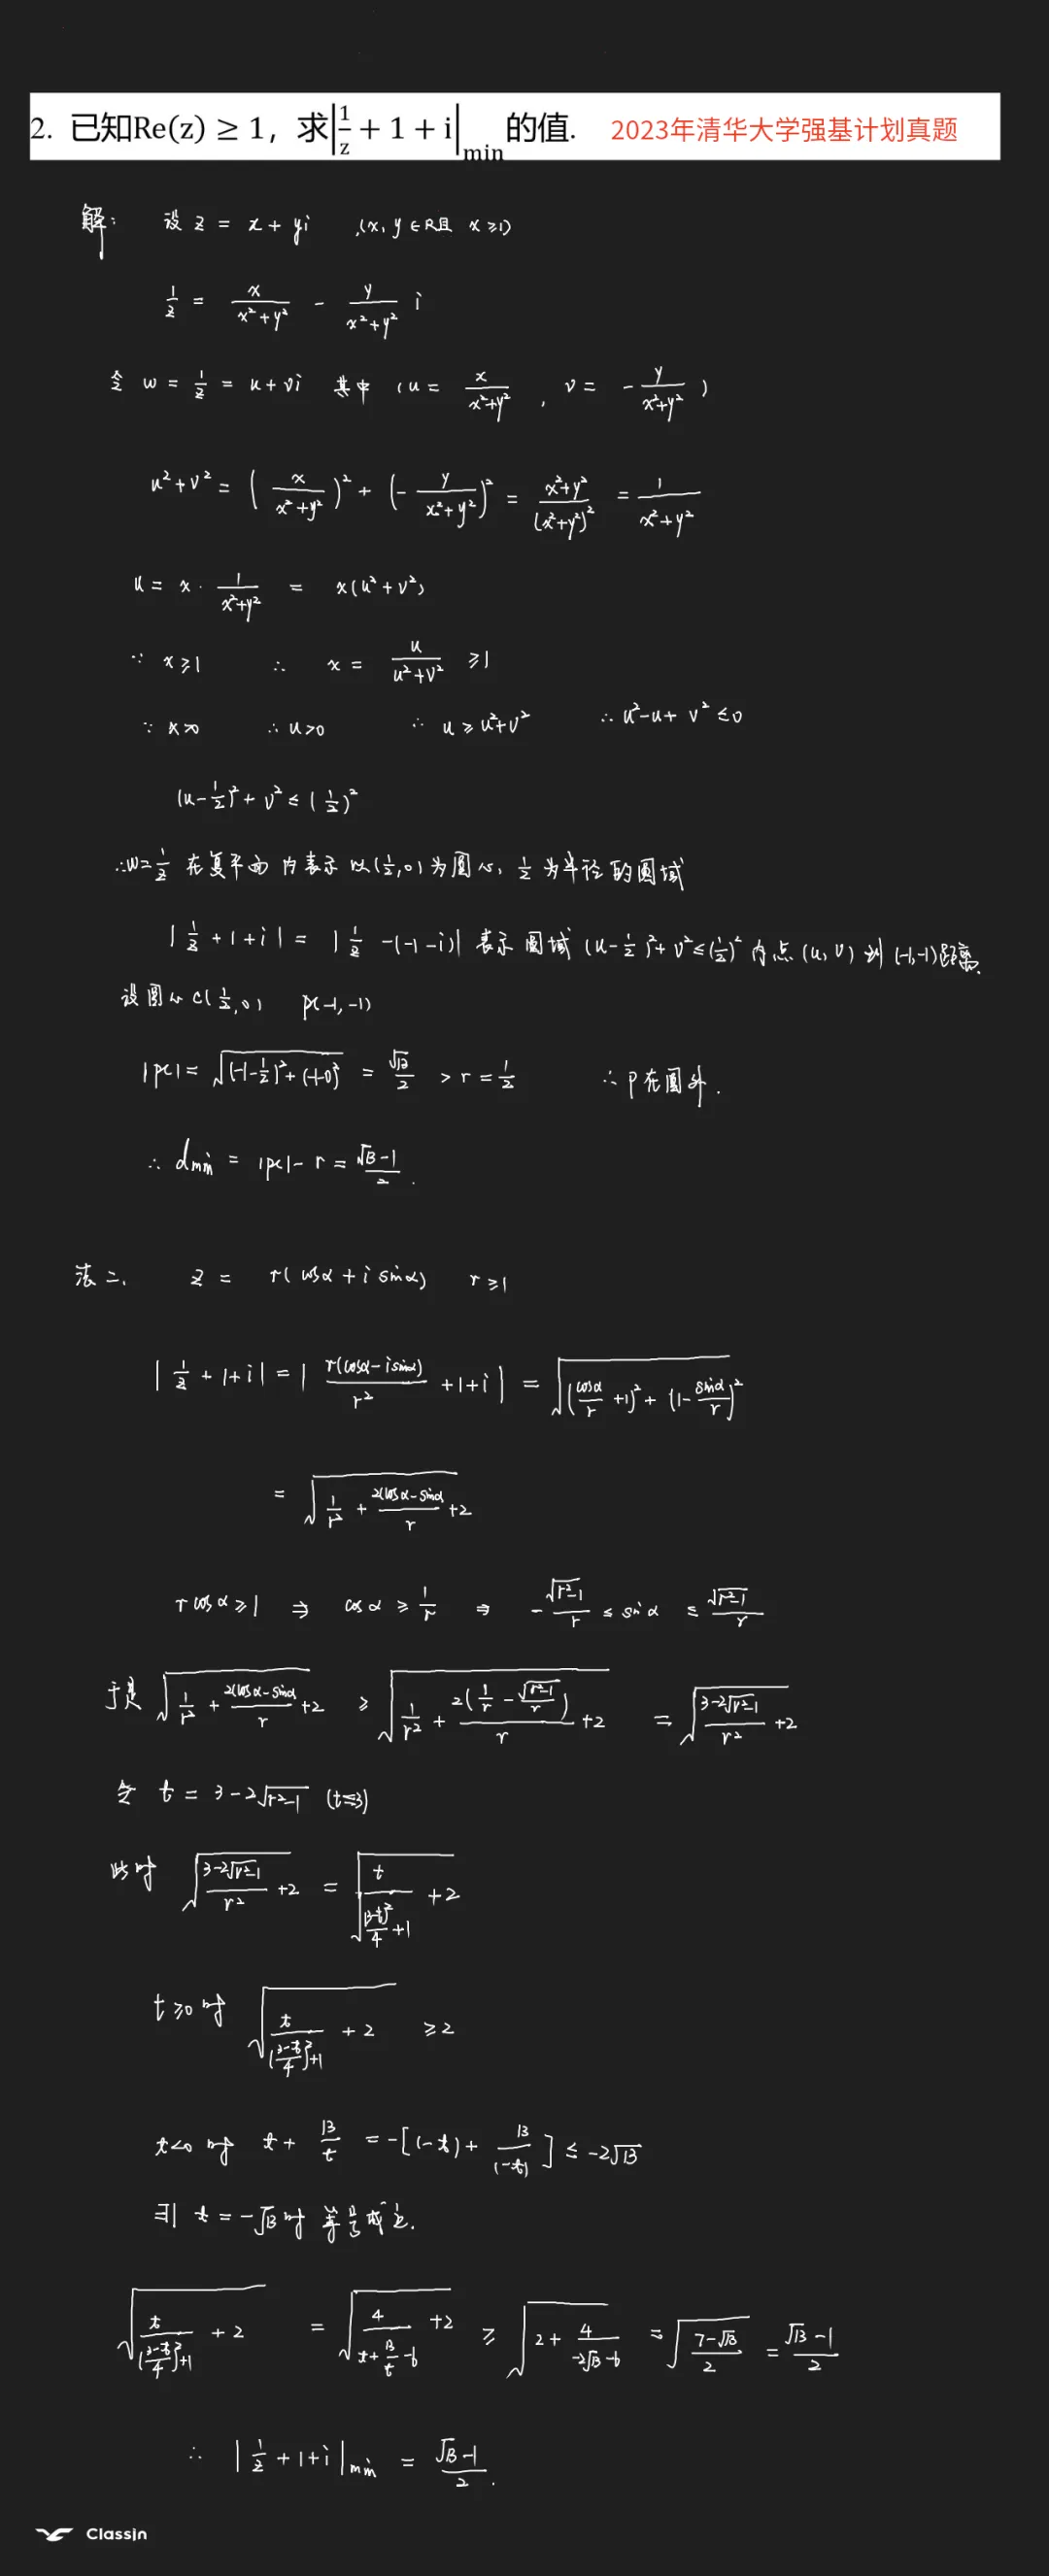 2. 已知Re(z) ≥ 1，求|1/z + 1 + i|min的值. 2023年清华大学强基计划真题
解: 设 z = x + yi (x, y ∈ R且 x ≥ 1)
1/z = x/(x²+y²) - y/(x²+y²) i
令 w = 1/z = u + vi 其中 (u = x/(x²+y²), v = - y/(x²+y²))
u² + v² = (x/(x²+y²))² + (- y/(x²+y²))² = (x²+y²)/(x²+y²)² = 1/(x²+y²)
u = x · 1/(x²+y²) = x(u²+v²)
∵ x ≥ 1 ∴ x = u/(u²+v²) ≥ 1
∵ x>0 ∴ u>0 ∴ u ≥ u²+v² ∴ u²-u+v² ≤ 0
(u-1/2)² + v² ≤ (1/2)²
∴ w=1/z 在复平面内表示以(1/2,0)为圆心, 1/2为半径的圆域
|1/z + 1 + i| = |1/z - (-1-i)| 表示圆域 (u-1/2)²+v²≤(1/2)² 内点(u,v)到(-1,-1)距离.
设圆心C(1/2,0) P(-1,-1)
|PC| = √((-1-1/2)²+(-1-0)²) = √13/2 > r = 1/2 ∴ P在圆外.
∴ dmin = |PC| - r = (√13-1)/2.
法二. z = r(cosα + i sinα) r ≥ 1
|1/z + 1 + i| = |r(cosα - i sinα)/r² + 1 + i| = √((cosα/r + 1)² + (1 - sinα/r)²)
= √(1/r² + 2(cosα - sinα)/r + 2)
r cosα ≥ 1 ⇒ cosα ≥ 1/r ⇒ -√(r²-1)/r ≤ sinα ≤ √(r²-1)/r
于是 √(1/r² + 2(cosα-sinα)/r + 2) ≥ √(1/r² + 2(1/r - √(r²-1)/r)/r + 2) = √((3-2√(r²-1))/r² + 2)
令 t = 3-2√(r²-1) (t≤3)
此时 √((3-2√(r²-1))/r² + 2) = √(t/((3-t)²/4+1) + 2)
t ≥ 0 时 √(t/((3-t)²/4+1) + 2) ≥ 2
t<0 时 t + 13/t = -[(-t) + 13/(-t)] ≤ -2√13
当 t = -√13 时 等号成立.
√(t/((3-t)²/4+1) + 2) = √(4/(t+13/t-6) + 2) ≥ √(2 + 4/(-2√13-6)) = √((7-√13)/2) = (√13-1)/2
∴ |1/z + 1 + i|min = (√13-1)/2.
ClassIn